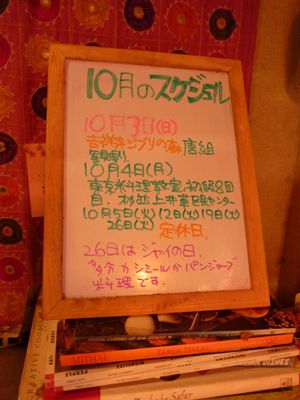 10月のスケジュール
10月3日(日)
吉祥寺ジブリの森 唐組
10月4日(月)
東京料理教室、初級8回
目、杉並上井草区センター
10月5日(火)12日(火)19日(火)
26日(火) 定休日、
26日はジャイの日、
多分カシミールかパンジャーブ
料理です。
CREATIVE
MITHAI
PEOPLE
DISHES